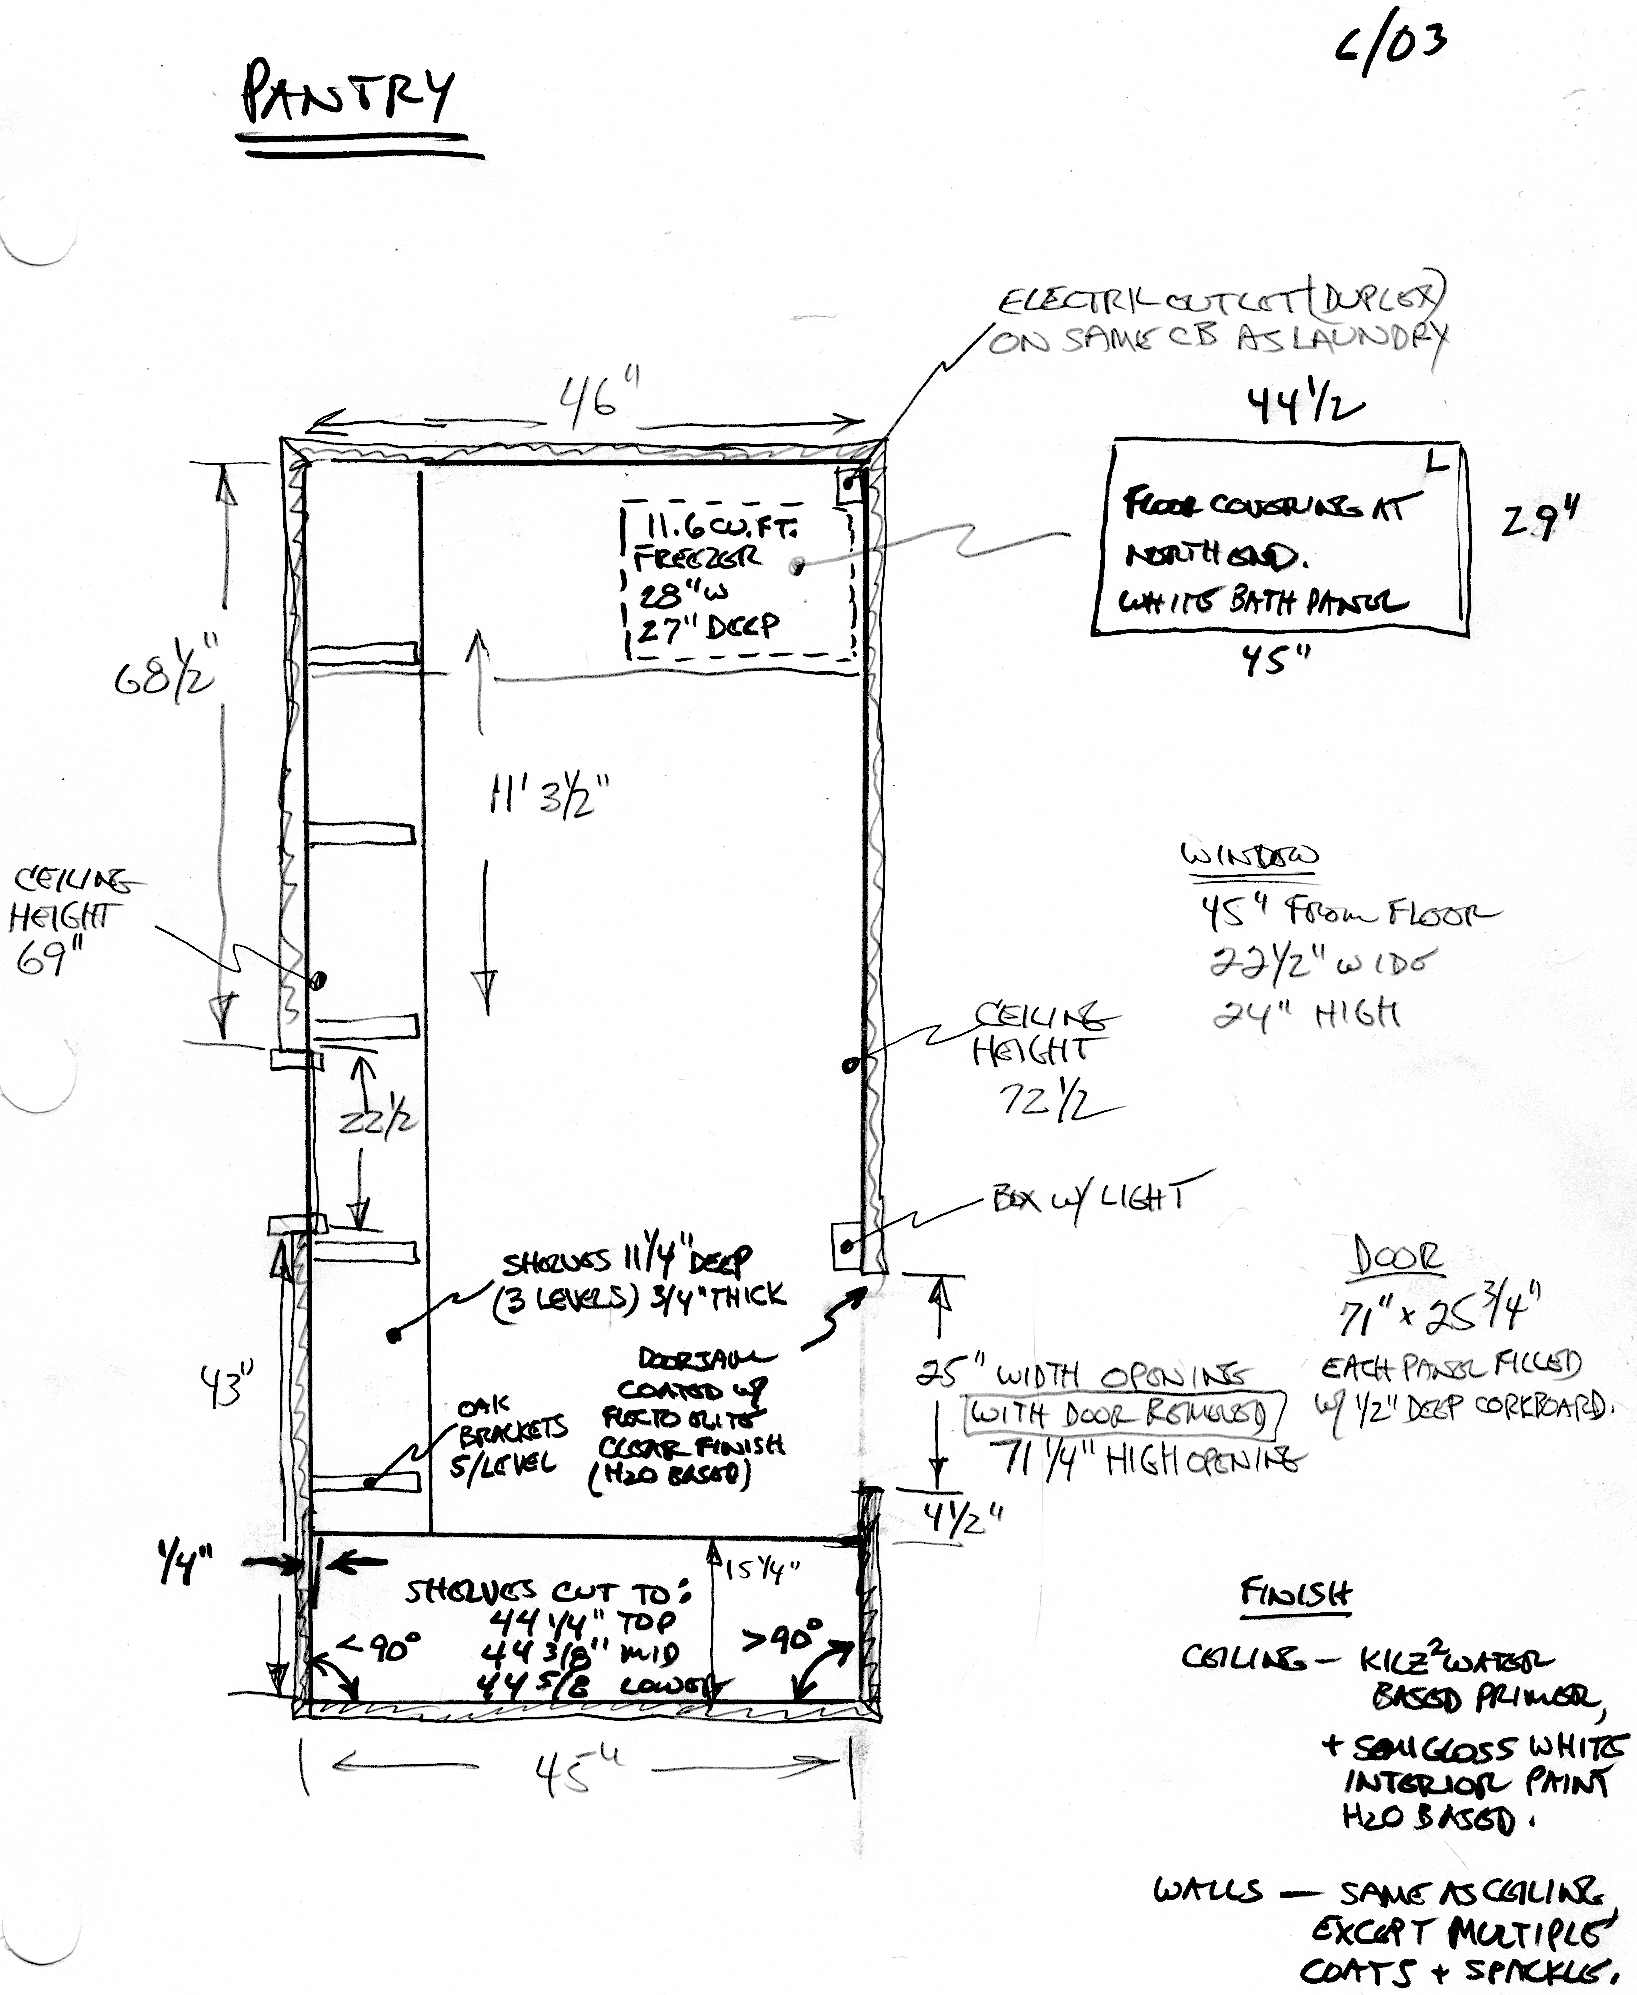 6/03
PANTRY
ELECTRIC OUTLET (DUPLEX)
ON SAME CB AS LAUNDRY
46"
44 1/2
FLOOR COVERING AT
NORTH END.
WHITE BATH PANEL
29"
45"
11.6 CU. FT.
FREEZER
28" W
27" DEEP
68 1/2"
11' 3 1/2"
CEILING
HEIGHT
69"
WINDOW
45" FROM FLOOR
22 1/2" WIDE
24" HIGH
CEILING
HEIGHT
72 1/2
22 1/2
BOX W/ LIGHT
SHELVES 11 1/4" DEEP
(3 LEVELS) 3/4" THICK
DOOR
71" x 25 3/4"
EACH PANEL FILLED
W/ 1/2" DEEP CORKBOARD.
43"
DOORJAM
COATED W/
FLECTO ELITE
CLEAR FINISH
(H2O BASED)
25" WIDTH OPENING
WITH DOOR REMOVED
71 1/4" HIGH OPENING
OAK
BRACKETS
5/LEVEL
4 1/2"
1/4"
15 1/4"
SHELVES CUT TO:
44 1/4" TOP
44 3/8" MID
44 5/8 LOWER
<90°
>90°
45"
FINISH
CEILING - KILZ2 WATER
BASED PRIMER,
+ SEMIGLOSS WHITE
INTERIOR PAINT
H2O BASED.
WALLS - SAME AS CEILING,
EXCEPT MULTIPLE
COATS + SPACKLE.